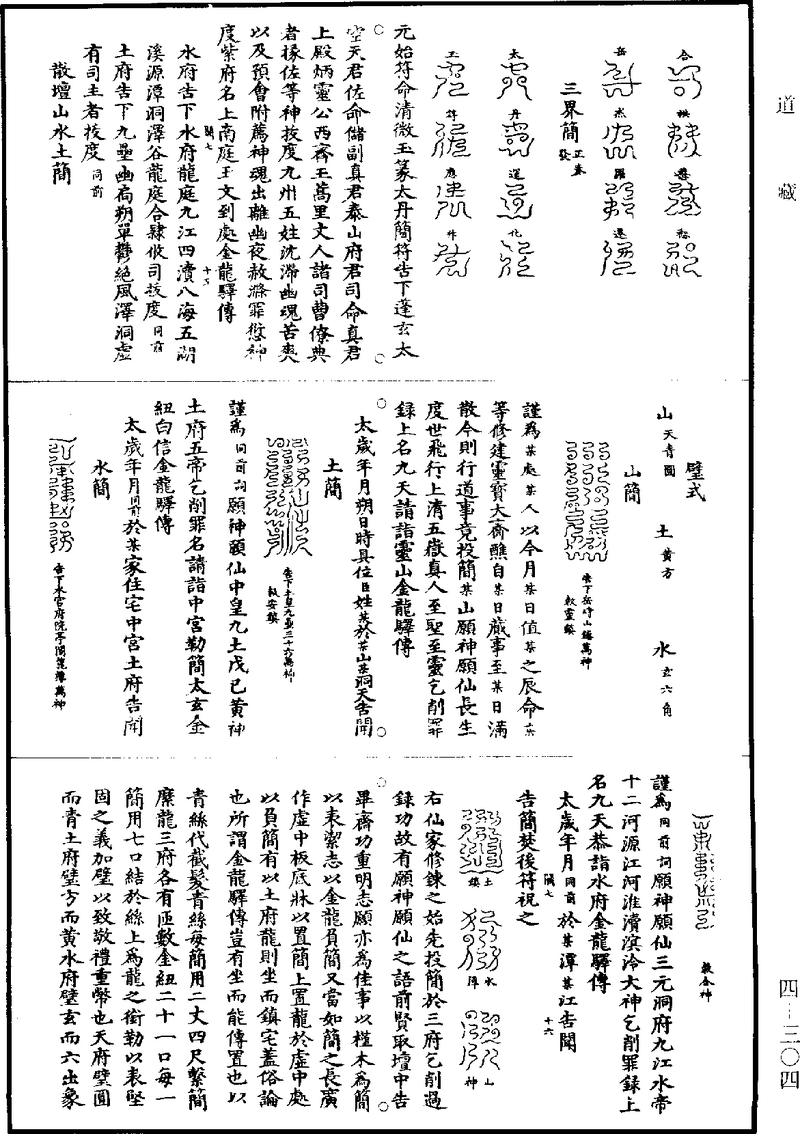 道藏
合
岳 羅
三界簡
太 丹 運 化
玉 符 應
元始符命清微玉篆太丹簡符告下蓬玄太
空天君佐命儲副真君泰山府君司命真君
上殿炳靈公西齊王蒿里丈人諸司曹僚典
者掾佐等神拔度九州五姓沈滯幽魂苦爽
以及預會附薦神魂出離幽夜赦滌罪愆神
度紫府名上南庭玉文到處金龍驛傳
水府告下水府龍庭九江四瀆八海五湖
溪源潭洞澤谷龍庭合肆攸司拔度同前
土府告下九壘幽扃朔單鬱絕風澤洞虛
有司主者拔度同前
散壇山水土簡
璧式
山天青圓 土黃方 水玄六角
山簡
告下岳府山鎮萬神
敕靈鎮
謹為某處某人以今月某日值某之辰命某
等修建靈寶大齋醮自某日蕆事至某日滿
散今則行道事竟投簡某山願神願仙長生
度世飛行上清五嶽真人至聖至靈乞削罪
錄上名九天請詣靈山金龍驛傳
太歲年月朔日時具位臣姓某於某山某洞天告聞
土簡
告下土皇九壘三十六萬神
敕安鎮
謹為同前詞願神願仙中皇九土戊己黃神
土府五帝乞削罪名請詣中宮勒簡太玄金
紐白信金龍驛傳
太歲年月同前於某家住宅中宮土府告聞
水簡
告下水官府院亭閣龍潭萬神
敕合神
謹為同前詞願神願仙三元洞府九江水帝
十二河源江河淮濟溟泠大神乞削罪錄上
名九天恭詣水府金龍驛傳
太歲年月同前於某潭某江告聞
告簡焚後符祝之
土 水 山
鎮 神
右仙家修鍊之始先投簡於三府乞削過
錄功故有願神願仙之語前賢取壇中告
畢齋功重明志願亦為佳事以槿木為簡
以表潔志以金龍負簡又當如簡之長廣
作虛中板底牀以置簡上置龍於虛中處
以負簡有以土府龍則坐而鎮宅蓋俗論
也所謂金龍驛傳豈有坐而能傳置也以
青絲代截髮青絲每簡用二丈四尺繫簡
縻龍三府各有匝數金紐二十一口每一
簡用七口結於絲上為龍之銜勒以表堅
固之義加璧以致敬禮重幣也天府璧圓
而青土府璧方而黃水府璧玄而六出象
四—三〇四